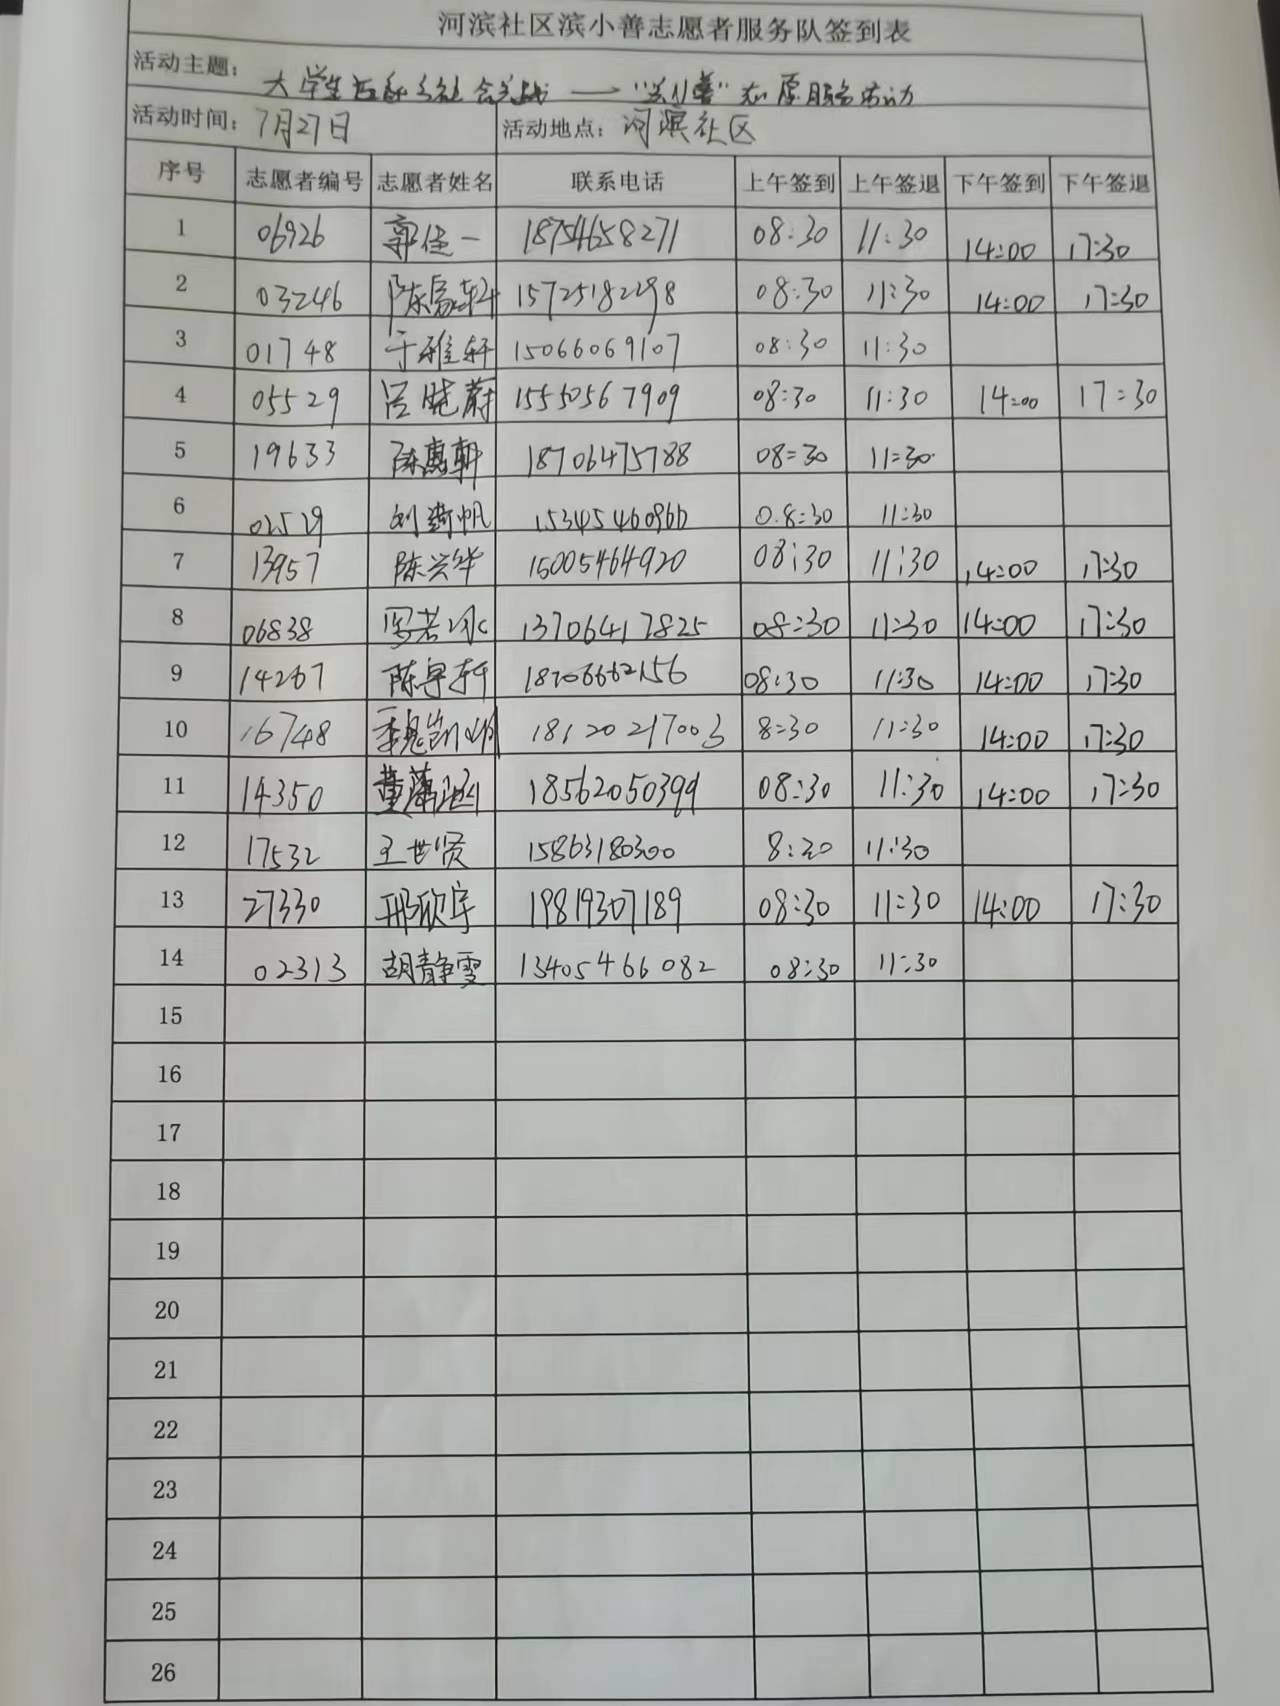 河滨社区滨小善志愿者服务队签到表
活动主题： 大学生 社会实践 —— 志愿服务活动
活动时间：7月27日 活动地点：河滨社区
序号 志愿者编号 志愿者姓名 联系电话 上午签到 上午签退 下午签到 下午签退
1 06926 郭佳一 18754658271 08:30 11:30 14:00 17:30
2 03246 陈 轩 15725182298 08:30 11:30 14:00 17:30
3 01748 于雅轩 15066069107 08:30 11:30
4 05529 吕晓蔚 15550567909 08:30 11:30 14:00 17:30
5 19633 陈惠朝 18706475788 08:30 11:30
6 02529 刘 帆 08:30 11:30
7 13957 陈兴华 15005464920 08:30 11:30 14:00 17:30
8 06838 若冰 13706417825 08:30 11:30 14:00 17:30
9 14267 陈宇轩 18706662156 08:30 11:30 14:00 17:30
10 16748 18120217003 8:30 11:30 14:00 17:30
11 14350 董 18562050399 08:30 11:30 14:00 17:30
12 17532 王世贤 15863180300 8:30 11:30
13 27330 邢欣宇 19819307189 08:30 11:30 14:00 17:30
14 02313 胡静雯 13405466082 08:30 11:30
15
16
17
18
19
20
21
22
23
24
25
26